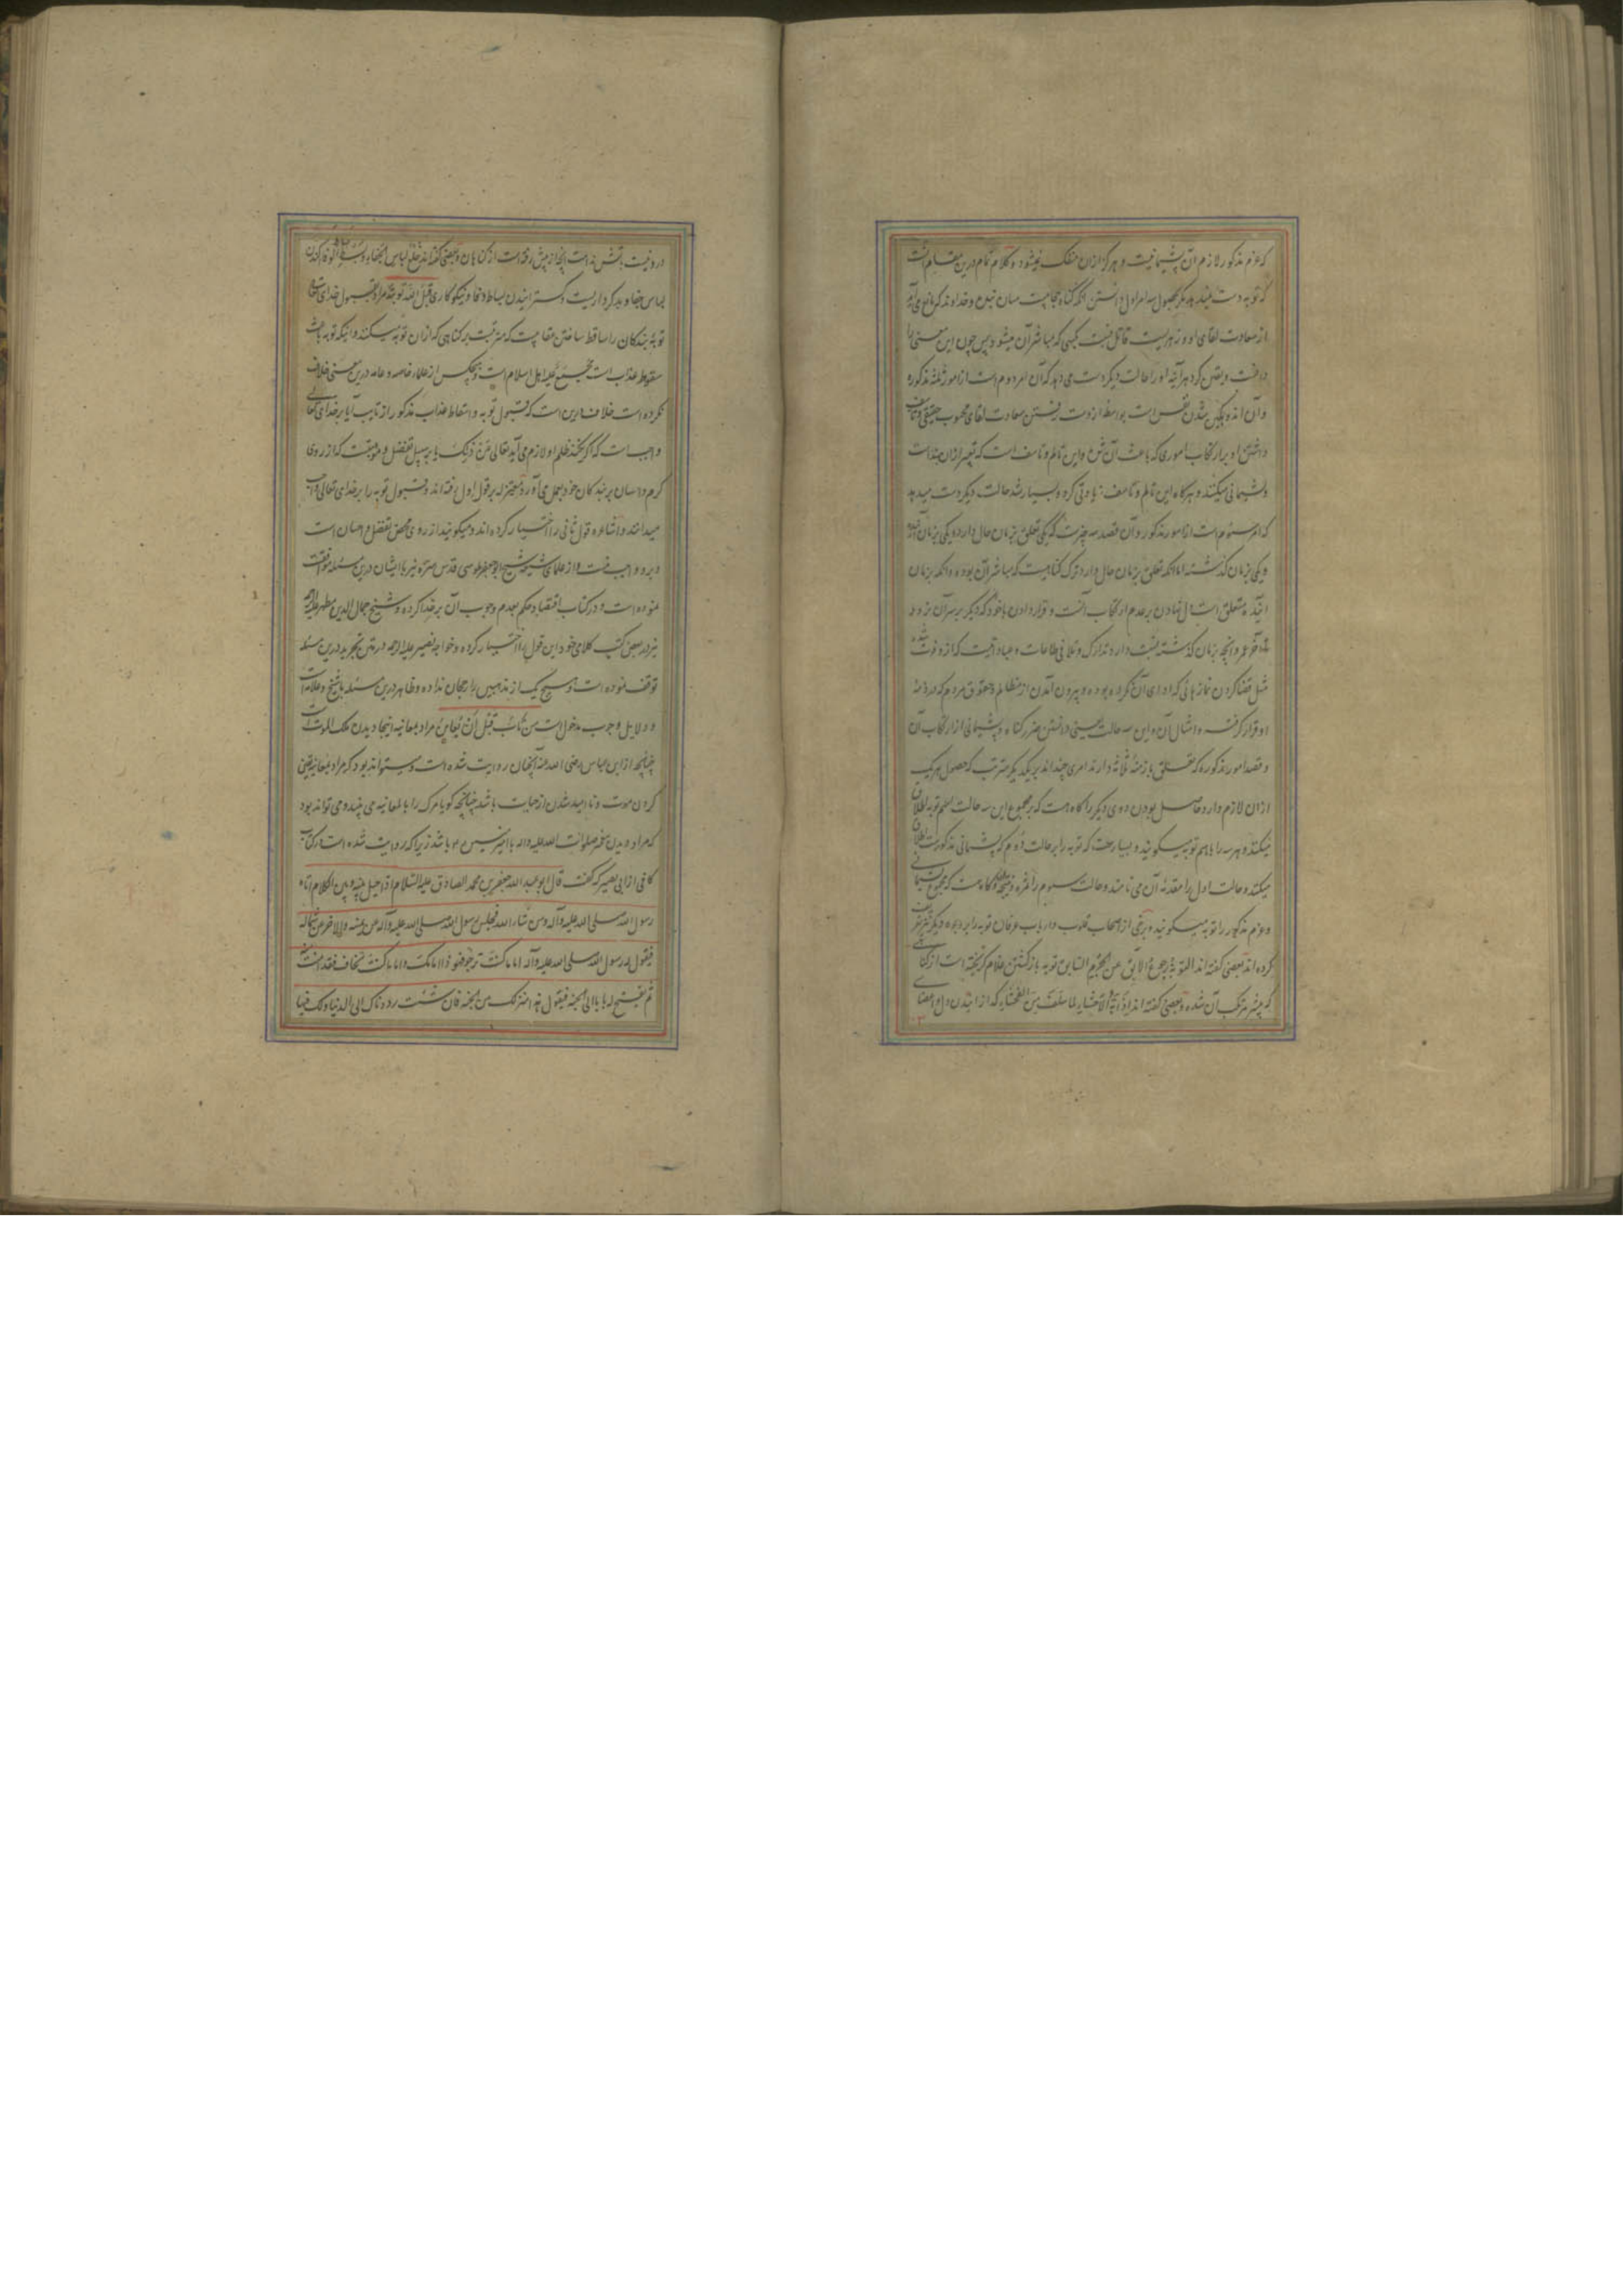 که عزم مذکور لازم آن پشیمانیست و هرگز ازان منفک نمیشود و کلام تمام درین مقام آنست
که توبه دست نمیدهد مگر بحصول سه امر اول دانستن آنکه گناه حجابیست میان بنده و خداوند که مانع می‌آید
از سعادت لقای او و زهریست قاتل نسبت بکسی که مباشر آن میشود پس چون این معنی را
دانست و یقین کرد هر آینه او را حالت دیگر دست می‌دهد که آن امر دوم است از امور ثلثه مذکوره
و آن اندوهگین شدن نفس است بواسطه از دست رفتن سعادت لقای محبوب حقیقی و تاسف
داشتن او بر ارتکاب اموری که باعث آن شد و این تالم و تاسف است که تعبیر ازان بندامت
و پشیمانی میکنند و هرگاه این تالم و تاسف زیادتی کرد و بسیار شد حالت دیگر دست میدهد
که امر سیوم است از امور مذکور و آن قصد سه چیزست که یکی تعلق بزمان حال دارد و یکی بزمان آینده
و یکی بزمان گذشته اما آنکه تعلق بزمان حال دارد ترک گناهیست که مباشر آن بوده و آنکه بزمان
آینده متعلق است دل نهادن بر عدم ارتکاب آنست و قرار دادن باخود که دیگر بر سر آن نرود
تا آخر عمر و آنچه بزمان گذشته نسبت دارد تدارک و تلافی طاعات و عباداتیست که ازو فوت شده
مثل قضا کردن نمازهائی که ادای آن نکرده بوده و بیرون آمدن از مظالم و حقوق مردم که در ذمهٔ
او قرار گرفته و امثال آن و این سه حالت یعنی دانستن ضرر گناه و پشیمانی از ارتکاب آن
و قصد امور مذکوره که تعلق بازمنهٔ ثلاثه دارند امری چندند بر یکدیگر مترتب که حصول هر یک
ازان لازم دارد حاصل بودن دوی دیگر را گاه هست که بر مجموع این سه حالت اسم توبه اطلاق
میکنند و هر سه را باهم توبه میگویند و بسیارست که توبه را بر حالت دوم که پشیمانی مذکورست اطلاق
میکنند و حالت اول را مقدمهٔ آن می‌نامند و حالت سیوم را ثمره و نتیجه و گاه هست که مجموع پشیمانی
و عزم مذکور را توبه میگویند و برخی از اصحاب قلوب و ارباب عرفان توبه را بر وجوه دیگر نیز تعریف
کرده اند بعضی گفته اند التوبة رجوع الآبق عن الجرم السابق توبه بازگشتن غلام گریخته است از گناهی
که پیشتر مرتکب آن شده و بعضی گفته اند اذابة الاحشاء لما سلف من الفحشاء که گداختن دل و اعضای
درونیست بآتش ندامت بر آنچه از پیش رفته است از گناهان و بعضی گفته اند خلع لباس الجفاء و بسط بساط الوفا کندن
لباس جفا و بدکرداریست و گسترانیدن بساط وفا و نیکوکاری قبل الله توبته مراد بقبول خدای تعالی
توبهٔ بندگان را ساقط ساختن عقابیست که مترتبست بر گناهی که ازان توبه میکنند و اینکه توبه باعث
سقوط عذاب است مجمع علیه اهل اسلام است و هیچکس از علماء خاصه و عامه درین معنی خلاف
نکرده است خلاف درین است که قبول توبه و اسقاط عذاب مذکور از تایب آیا بر خدای تعالی
واجبست که اگر نکند ظلم او لازم می‌آید تعالی عن ذلک یا بر سبیل تفضل و موهبتست که از روی
کرم و احسان بر بندگان خود بعمل می‌آورد معتزله بر قول اول رفته اند و قبول توبه را بر خدای تعالی واجب
میدانند و اشاعره قول ثانی را اختیار کرده اند و میگویند از روی محض تفضل و احسان است
و برو واجب نیست و از علمای شیعه شیخ ابوجعفر طوسی قدس سره نیز با ایشان درین مسئله موافقت
نموده است و در کتاب اقتصاد حکم بعدم وجوب آن بر خدا کرده و شیخ جمال الدین مطهر علیه الرحمه
نیز در بعضی کتب کلامی خود این قول را اختیار کرده و خواجه نصیر علیه الرحمه در متن تجرید درین مسئله
توقف نموده است و هیچ یک از مذهبین را رجحان نداده و ظاهر درین مسئله با شیخ و علامه است
و دلایل وجوب مدخول است من تاب قبل ان یعاین مراد بمعاینه اینجا دیدن ملک الموت است
چنانچه از ابن عباس رضی الله عنه آنچنان روایت شده است و میتواند بود که مراد بمعاینه یقین
کردن موت و ناامید شدن از حیات باشد چنانچه گویا مرگ را بالمعاینه می‌بیند و می‌تواند بود
که مراد دیدن محمد صلوات الله علیه و اله یا امیرالمؤمنین باشد زیرا که روایت شده است در کتاب
کافی از ابی بصیر که گفت قال ابو عبد الله جعفر بن محمد الصادق علیه السلام اذا حیل بینه و بین الکلام اتاه
رسول الله صلی الله علیه و آله و من شاء الله فجلس رسول الله صلی الله علیه و آله عن یمینه و الاخر عن شماله
فیقول له رسول الله صلی الله علیه و آله اما ما کنت ترجو فهو ذا امامک و اما ما کنت تخاف فقد امنت منه
ثم یفتح له بابا الی الجنة فیقول هذا منزلک من الجنة فان شئت رددناک الی الدنیا و لک فیها